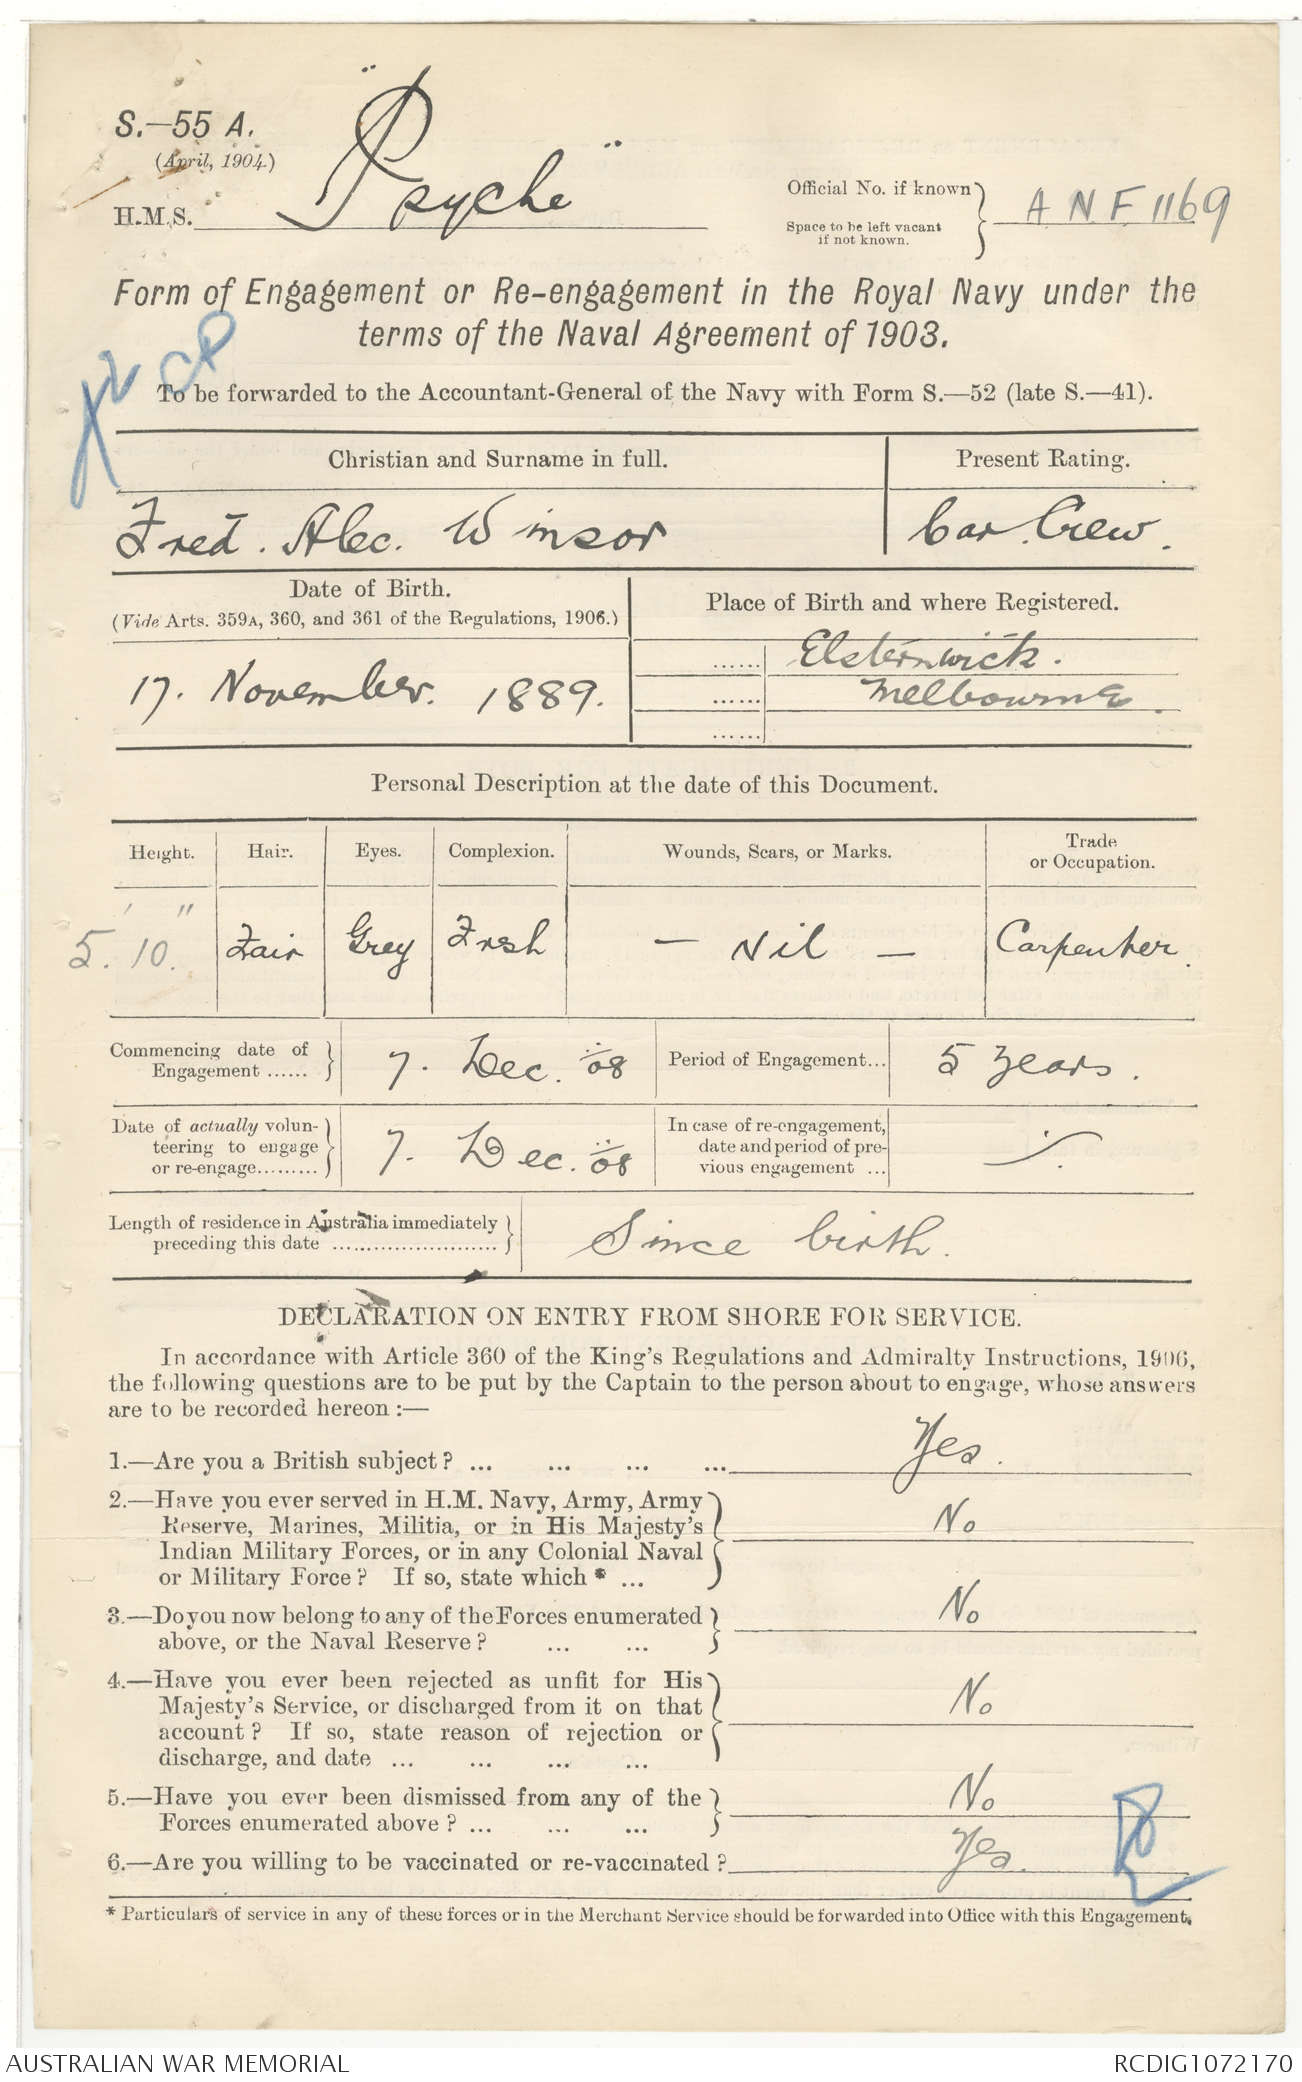 S.—55 A.
(April, 1904.)
H.M.S. "Psyche"
Official No. if known
Space to be left vacant
if not known.
A N F 1169
Form of Engagement or Re-engagement in the Royal Navy under the
terms of the Naval Agreement of 1903.
To be forwarded to the Accountant-General of the Navy with Form S.—52 (late S.—41).
Christian and Surname in full.
Present Rating.
Fred. Alec. Winsor
Car. Crew.
Date of Birth.
(Vide Arts. 359A, 360, and 361 of the Regulations, 1906.)
Place of Birth and where Registered.
17. November. 1889.
...... Elsternwick.
...... Melbourne.
......
Personal Description at the date of this Document.
Height. Hair. Eyes. Complexion. Wounds, Scars, or Marks. Trade
or Occupation.
5.' 10." Fair Grey Fresh — Nil — Carpenter.
Commencing date of
Engagement ......
7. Dec. 08
Period of Engagement...
5 Years.
Date of actually volun-
teering to engage
or re-engage.........
7. Dec. 08
In case of re-engagement,
date and period of pre-
vious engagement ...
Length of residence in Australia immediately
preceding this date ...........................
Since birth.
DECLARATION ON ENTRY FROM SHORE FOR SERVICE.
In accordance with Article 360 of the King's Regulations and Admiralty Instructions, 1906,
the following questions are to be put by the Captain to the person about to engage, whose answers
are to be recorded hereon :—
1.—Are you a British subject? ... ... ... ... Yes.
2.—Have you ever served in H.M. Navy, Army, Army
Reserve, Marines, Militia, or in His Majesty's
Indian Military Forces, or in any Colonial Naval
or Military Force? If so, state which * ...
No
3.—Do you now belong to any of the Forces enumerated
above, or the Naval Reserve? ... ...
No
4.—Have you ever been rejected as unfit for His
Majesty's Service, or discharged from it on that
account? If so, state reason of rejection or
discharge, and date ... ... ... ...
No
5.—Have you ever been dismissed from any of the
Forces enumerated above? ... ... ...
No
6.—Are you willing to be vaccinated or re-vaccinated? Yes.
* Particulars of service in any of these forces or in the Merchant Service should be forwarded into Office with this Engagement.
AUSTRALIAN WAR MEMORIAL
RCDIG1072170